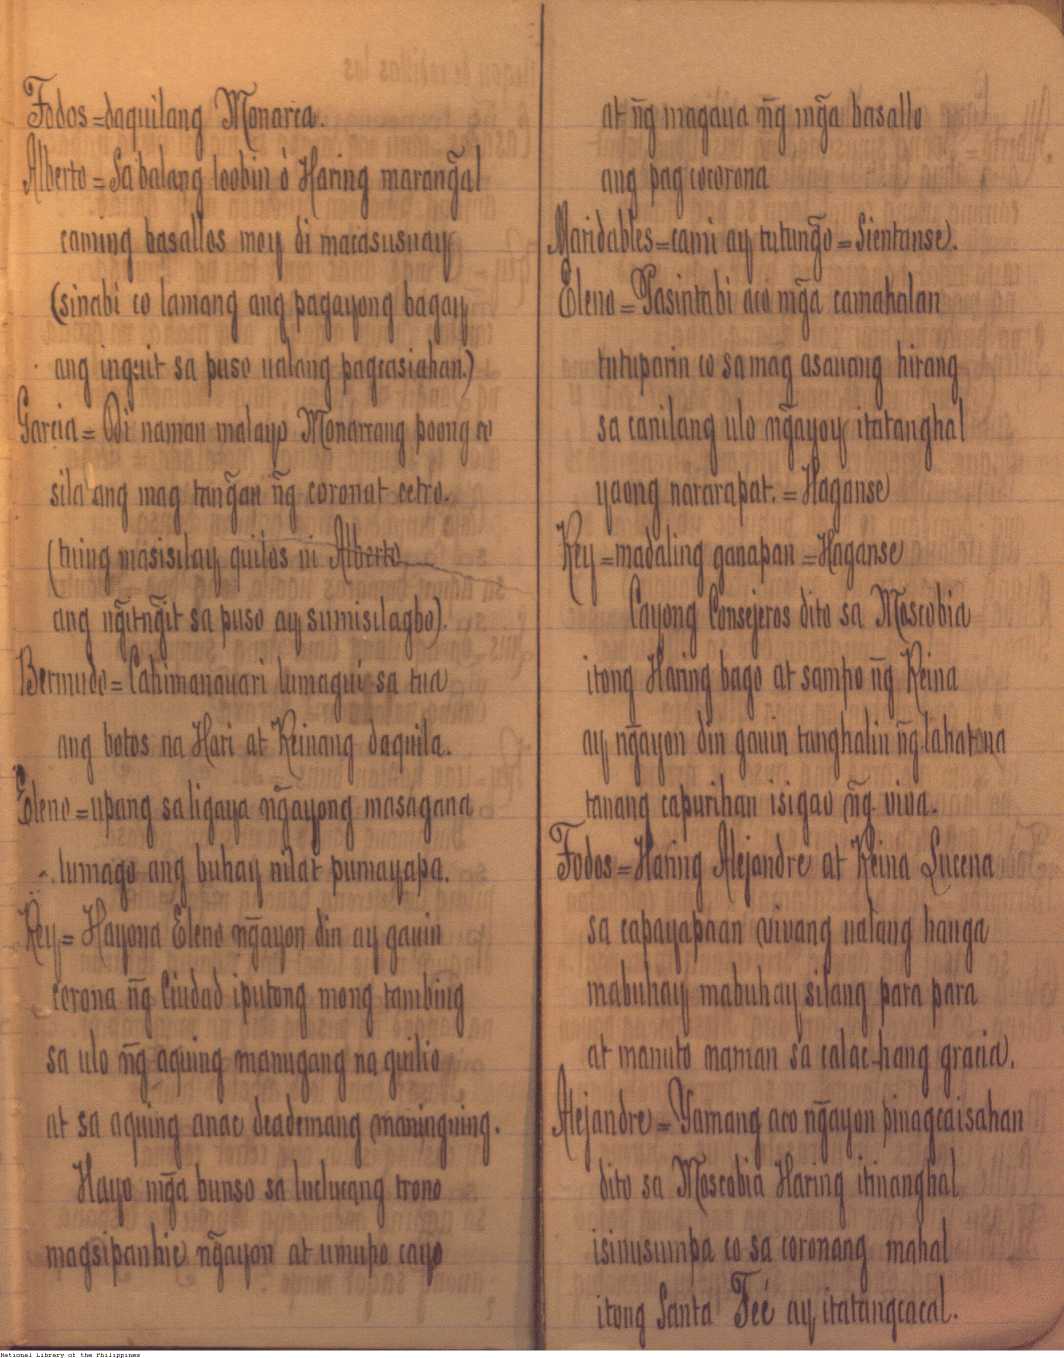 Todos = daquilang Monarca.
Alberto = Sa balang loobin ò Haring marang̃al
caming basallos moy di macasusuay
(sinabi co lamang ang pagayong bagay
ang inguit sa puso ualang pagcasiahan.)
Garcia = Di naman malayo Monarcang poong co
sila ang mag tang̃an ñg coronat cetro.
(tuing masisilay quilos ni Alberto
ang ng̃itng̃it sa puso ay sumisilagbo).
Bermudo = Cahimanauari lumagui sa tua
ang botos na Hari at Reinang daquila.
Eleno = upang sa ligaya ng̃ayong masagana
lumago ang buhay nilat pumayapa.
Rey = Hayona Eleno ng̃ayon din ay gauin
corona ñg Ciudad iputong mong tambing
sa ulo ñg aquing manugang na guilio
at sa aquing anac deademang maningning.
Hayo mg̃a bunso sa luclucang trono
magsipanhic ng̃ayon at umupo cayo
at ñg magaua ñg mg̃a basallo
ang pag cocorona
Maridables = cami ay tutung̃o = Sientanse.
Eleno = Pasintabi aco mg̃a camahalan
tutuparin co sa mag asauang hirang
sa canilang ulo ng̃ayoy itatanghal
yaong nararapat. = Haganse
Rey = madaling ganapan = Haganse
Cayong Consejeros dito sa Moscobia
itong Haring bago at sampo ñg Reina
ay ng̃ayon din gauin tanghalin ñg lahat na
tanang capurihan isigao ñg viva.
Todos = Haring Alejandre at Reina Lucena
sa capayapaan vivang ualang hanga
mabuhay mabuhay silang para para
at manuto naman sa calac-hang gracia.
Alejandre = Yamang aco ng̃ayon pinagcaisahan
dito sa Moscobia Haring itinanghal
isinusumpa co sa coronang mahal
itong Santa Feé ay itatangcacal.
National Library of the Philippines